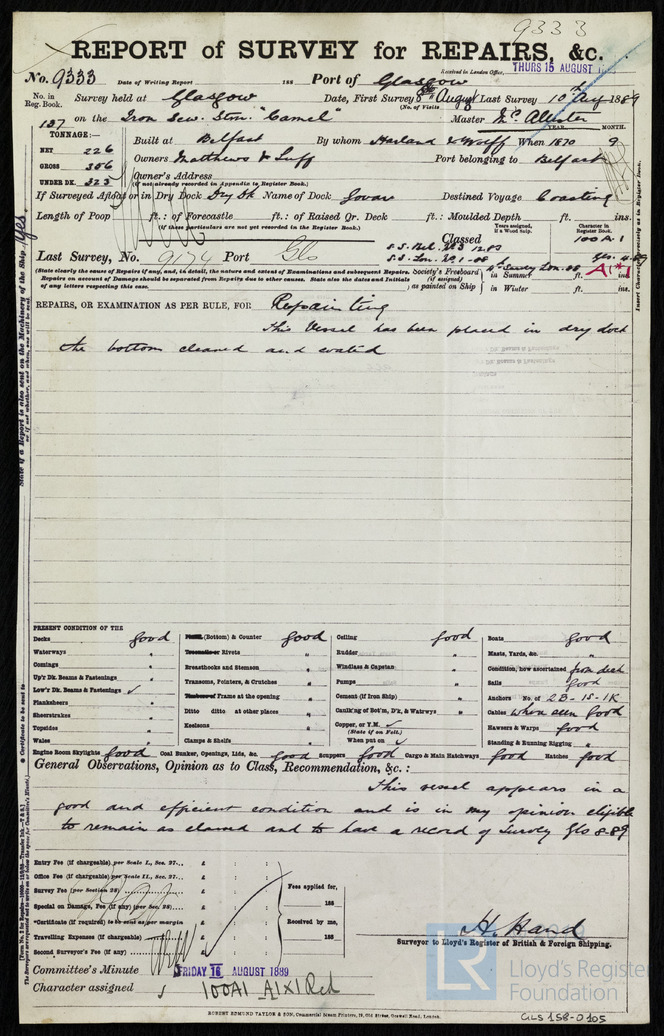 9333
REPORT of SURVEY for REPAIRS, &c.
No. 9333 Date of Writing Report 188 Port of Glasgow Received in London Office, THURS 15 AUGUST
No. in Reg. Book. Survey held at Glasgow Date, First Survey 8th August Last Survey 10th Aug 1889
(No. of Visits
127 on the Iron Scw. Stmr. "Camel" Master McAllister
TONNAGE:— YEAR. MONTH.
NET 226 Built at Belfast By whom Harland & Wolff When 1870 9
GROSS 356 Owners Port belonging to Belfast
UNDER DK. 323 Owner's Address
(if not already recorded in Appendix to Register Book.)
If Surveyed Afloat or in Dry Dock Dry Dk Name of Dock Govan Destined Voyage Coasting
Length of Poop ft.: of Forecastle ft.: of Raised Qr. Deck ft.: Moulded Depth ft. ins.
(If these particulars are not yet recorded in the Register Book.)
Years assigned, if a Wood Ship. Character in Register Book.
Classed 100A1
Last Survey, No. 9174 Port Glo S.S. Bel. No3 12.83
S.S. Lon. No.1-88 Gls. 4.89
(State clearly the cause of Repairs if any, and, in detail, the nature and extent of Examinations and subsequent Repairs. Society's Freeboard in Summer ft. ins.
Repairs on account of Damage should be separated from Repairs due to other causes. State also the dates and Initials (if assigned)
of any letters respecting this case. as painted on Ship in Winter ft. ins.
REPAIRS, OR EXAMINATION AS PER RULE, FOR Repainting
This vessel has been placed in dry dock
the bottom cleaned and coated
PRESENT CONDITION OF THE
Decks good (Bottom) & Counter good Ceiling good Boats good
Waterways " Rivets " Rudder " Masts, Yards, &c. "
Comings " Breasthooks and Stemson " Windlass & Capstan " Condition, how ascertained from deck
Up'r Dk. Beams & Fastenings " Transoms, Pointers, & Crutches " Pumps " Sails good
Low'r Dk. Beams & Fastenings ✓ Frame at the opening " Cement (if Iron Ship) " Anchors No. of 2B-1S-1K
Plansheers " Ditto ditto at other places " Caulk'g of Bot'm, D'k, & Watrwys " Cables when seen good
Sheerstrakes " Keelsons " Copper, or Y.M. ✓ Hawsers & Warps good
Topsides " (State if on Felt.)
Wales " Clamps & Shelfs " When put on ✓ Standing & Running Rigging "
Engine Room Skylights good Coal Bunker, Openings, Lids, &c. good Scuppers good Cargo & Main Hatchways good Hatches good
General Observations, Opinion as to Class, Recommendation, &c.:
This vessel appears in a
good and efficient condition and is in my opinion eligible
to remain as classed and to have a record of Survey Gls 8-89
Entry Fee (if chargeable) per Scale I., Sec. 27 £ : :
Office Fee (if chargeable) per Scale II., Sec. 27 £ : : Fees applied for,
Survey Fee (per Section 28) £ : : 188
Special on Damage, Fee (if any) (per Sec. 28) £ : :
*Certificate (if required) to be sent as per margin £ : : Received by me,
Travelling Expenses (if chargeable) £ : : 188
Second Surveyor's Fee (if any) £ : :
H. Hand
Surveyor to Lloyd's Register of British & Foreign Shipping.
Committee's Minute FRIDAY 16 AUGUST 1889
Character assigned 100A1
LR Lloyd's Register Foundation
ROBERT EDMUND TAYLOR & SON,
GLS 158-0105